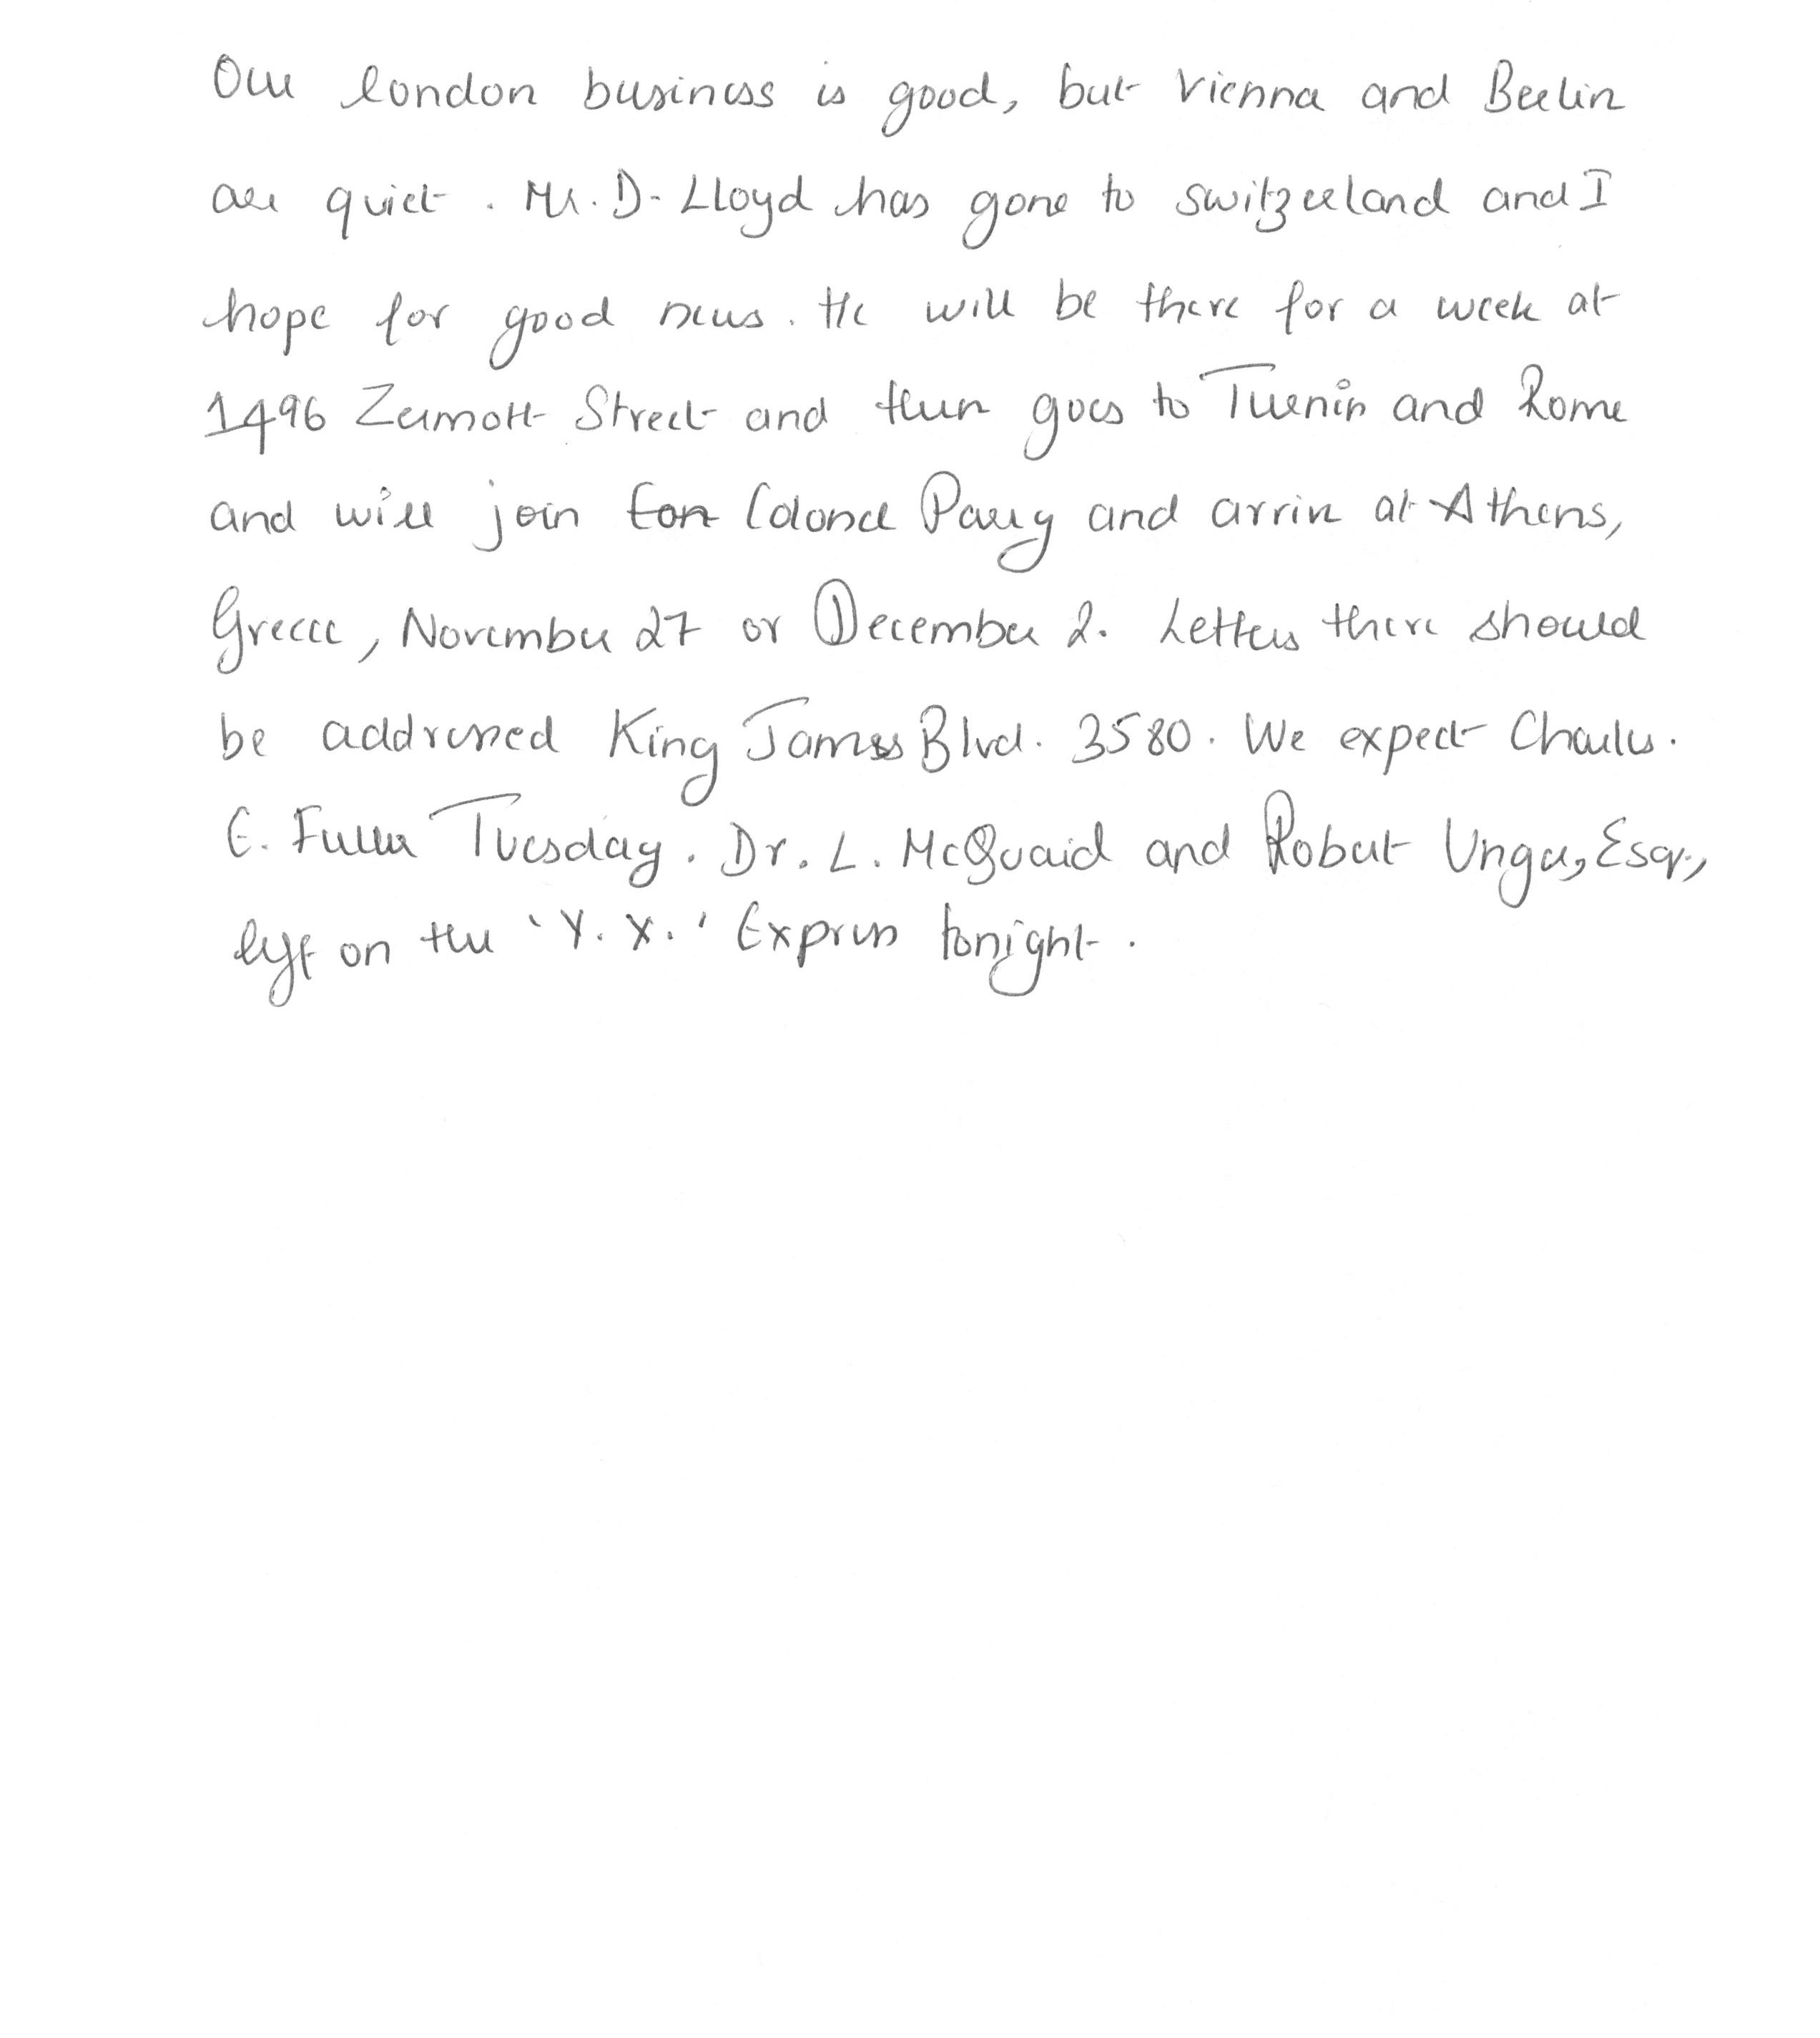 Our london business is good, but Vienna and Berlin
are quiet. Mr. D. Lloyd has gone to switzerland and I
hope for good news. He will be there for a week at
1496 Zermott Street and then goes to Turnin and Rome
and will join Colonel Parry and arrive at Athens,
Greece, November 27 or December 2. Letters there should
be addressed King James Blvd. 3580. We expect Charles.
E. Fuller Tuesday. Dr. L. McQuaid and Robert Unger, Esq.,
left on the 'Y. X.' Express tonight.